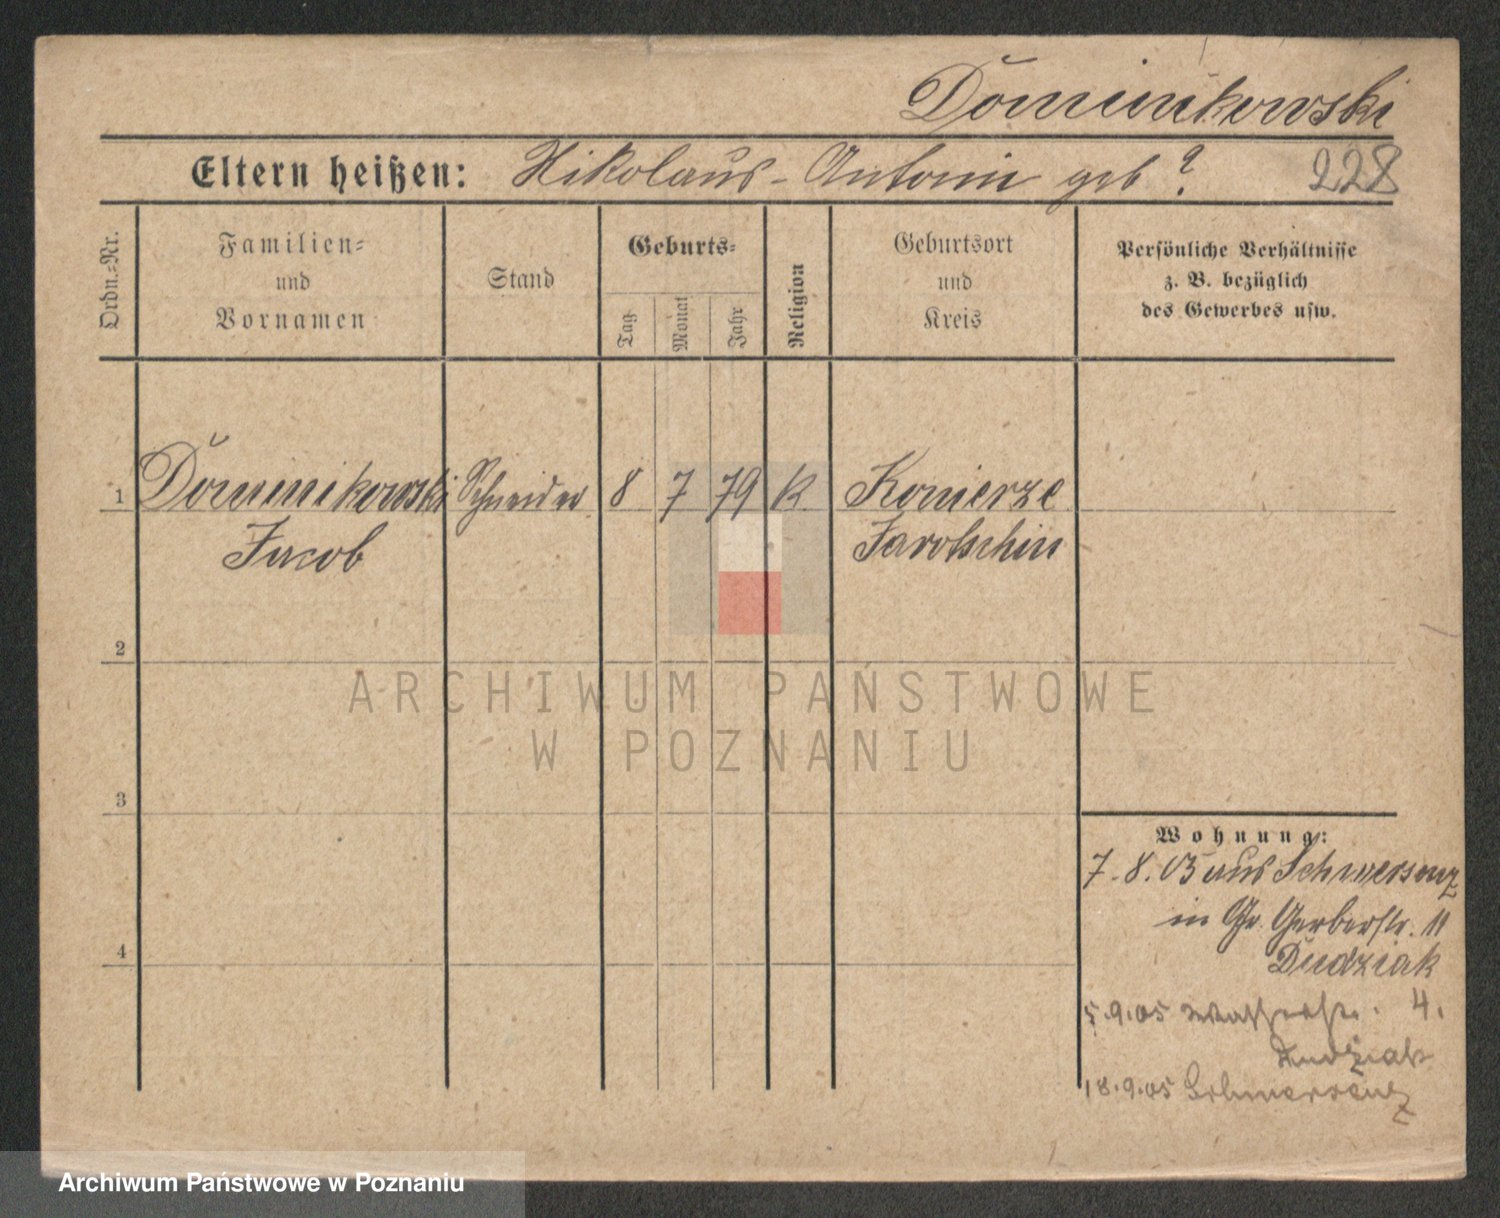 Dominikowski
Eltern heißen: Nikolaus - Antonin geb ? 228
Ordn.=Nr.
Familien=
und
Vornamen
Stand
Geburts=
Tag
Monat
Jahr
Religion
Geburtsort
und
Kreis
Persönliche Verhältnisse
z. B. bezüglich
des Gewerbes usw.
1 Dominikowski Schneider 8 7 79 K Konierze
Jacob Jarotschin
2
ARCHIWUM PAŃSTWOWE
W POZNANIU
3
Wohnung:
7.8.05 aus Schwersenz
in Gr. Gerberstr. 11
Dudziak
4
5.9.05 Wasserstr. 4.
Dudziak
18.9.05 Schwersenz
Archiwum Państwowe w Poznaniu